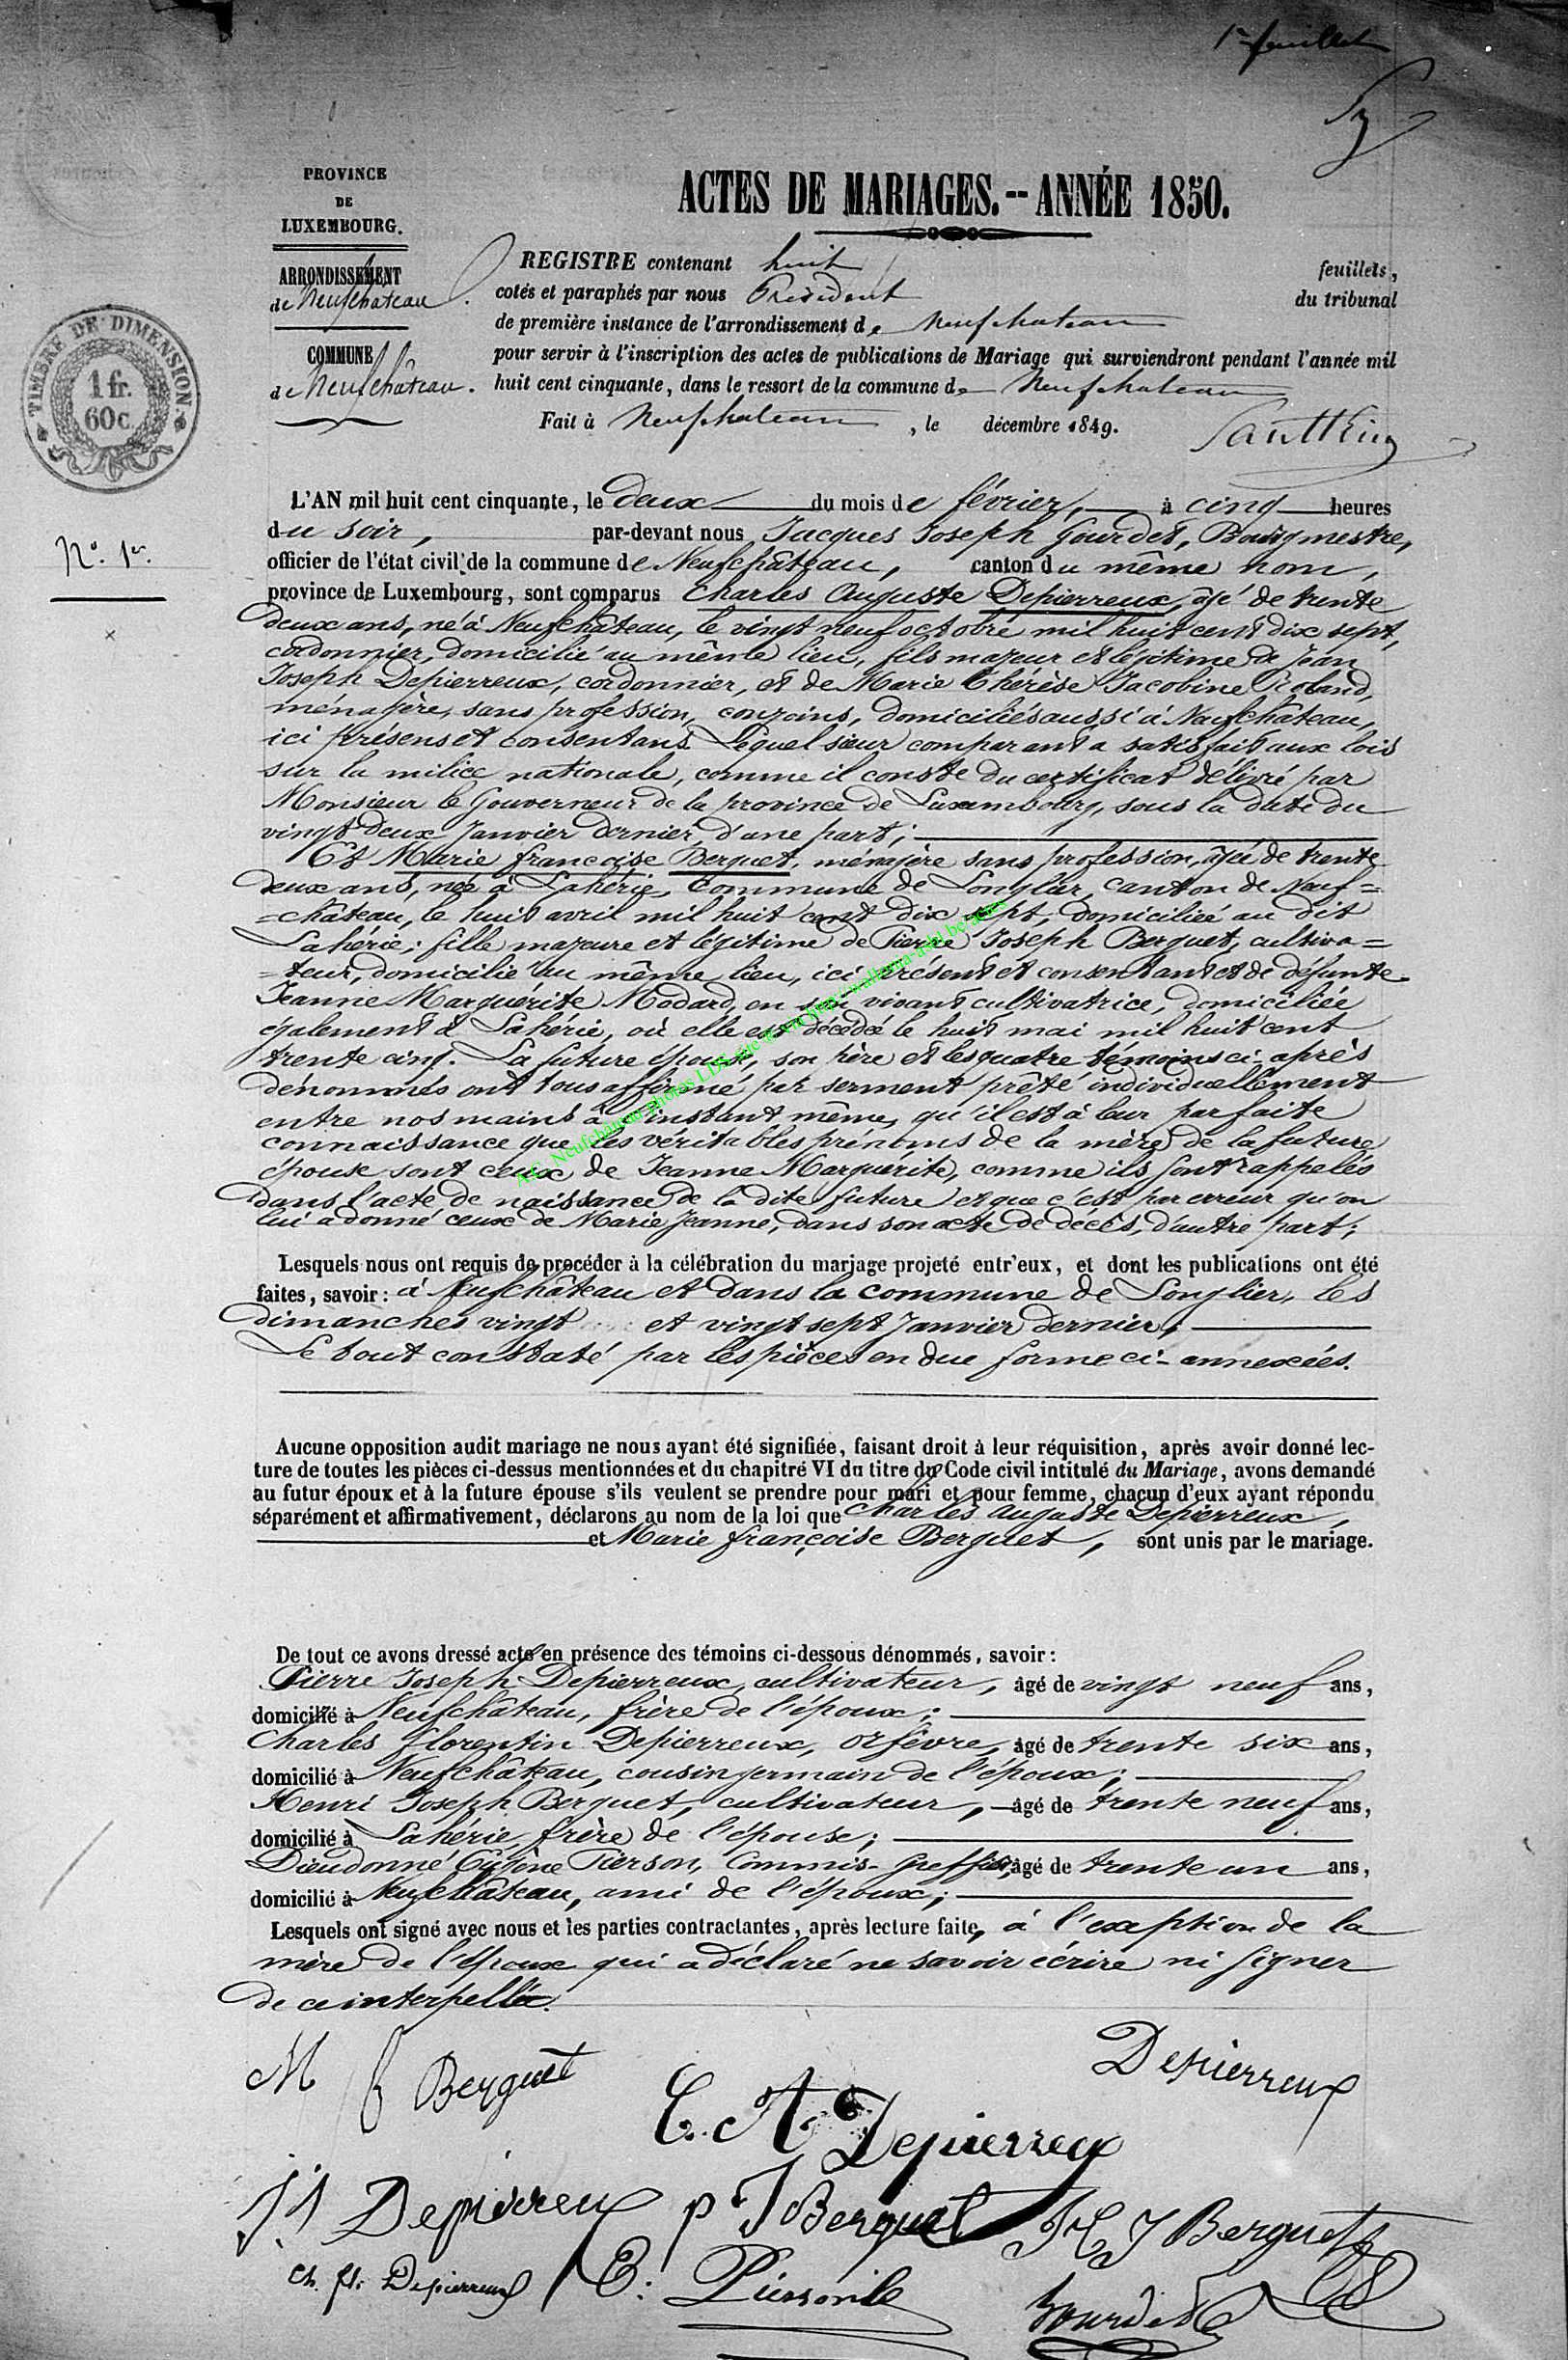 1er feuillet
PROVINCE
DE
LUXEMBOURG.
ARRONDISSEMENT
de Neufchâteau.
COMMUNE
de Neufchâteau.
TIMBRE DE DIMENSION
1 fr.
60 c.
ACTES DE MARIAGES.-- ANNÉE 1850.
REGISTRE contenant huit feuillets,
cotés et paraphés par nous Président du tribunal
de première instance de l'arrondissement de Neufchateau
pour servir à l'inscription des actes de publications de Mariage qui surviendront pendant l'année mil
huit cent cinquante, dans le ressort de la commune de Neufchateau
Fait à Neufchateau, le décembre 1849.
N°. 1er.
L'AN mil huit cent cinquante, le deux du mois de février, à cinq heures
du soir, par-devant nous Jacques Joseph Gourdet, Bourgmestre,
officier de l'état civil de la commune de Neufchâteau, canton du même nom,
province de Luxembourg, sont comparus Charles Auguste Depierreux, âgé de trente
deux ans, né à Neufchâteau, le vingt neuf octobre mil huit cent dix sept,
cordonnier, domicilié au même lieu, fils majeur et légitime de Jean
Joseph Depierreux, cordonnier, et de Marie Thérèse Jacobine Roland,
ménagère, sans profession, conjoins, domiciliés aussi à Neufchâteau,
ici présens et consentans. Lequel sieur comparant a satisfait aux lois
sur la milice nationale, comme il conste du certificat délivré par
Monsieur le Gouverneur de la province de Luxembourg, sous la date du
vingt deux Janvier dernier, d'une part;
Et Marie françoise Berguet, ménagère sans profession, âgée de trente
deux ans, née à Lahérie, Commune de Longlier, Canton de Neuf=
=château, le huit avril mil huit cent dix sept, domiciliée au dit
Lahérie; fille majeure et légitime de Pierre Joseph Berguet, cultiva=
=teur, domicilié au même lieu, ici présent et consentant et de défunte
Jeanne Marguérite Modard, en son vivant cultivatrice, domiciliée
également à Lahérie, où elle est décédée le huit mai mil huit cent
trente cinq. La future épouse, son père et les quatre témoins ci-après
dénommés ont tous affirmé par serment prêté individuellement
entre nos mains à l'instant même, qu'il est à leur parfaite
connaissance que les véritables prénoms de la mère de la future
épouse sont ceux de Jeanne Marguérite, comme ils sont rappelés
dans l'acte de naissance de la dite future et que c'est par erreur qu'on
lui a donné ceux de Marie Jeanne, dans son acte de décès, d'autre part;
Lesquels nous ont requis de procéder à la célébration du mariage projeté entr'eux, et dont les publications ont été
faites, savoir: à Neufchâteau et dans la commune de Longlier, les
dimanches vingt et vingt sept Janvier dernier;
Le tout constaté par les pièces en due forme ci-annexées.
Aucune opposition audit mariage ne nous ayant été signifiée, faisant droit à leur réquisition, après avoir donné lec-
ture de toutes les pièces ci-dessus mentionnées et du chapitre VI du titre du Code civil intitulé du Mariage, avons demandé
au futur époux et à la future épouse s'ils veulent se prendre pour mari et pour femme, chacun d'eux ayant répondu
séparément et affirmativement, déclarons au nom de la loi que Charles Auguste Depierreux,
et Marie françoise Berguet, sont unis par le mariage.
De tout ce avons dressé acte en présence des témoins ci-dessous dénommés, savoir:
Pierre Joseph Depierreux, cultivateur, âgé de vingt neuf ans,
domicilié à Neufchâteau, frère de l'époux;
Charles florentin Depierreux, orfèvre, âgé de trente six ans,
domicilié à Neufchâteau, cousin germain de l'époux;
Henri Joseph Berguet, cultivateur, âgé de trente neuf ans,
domicilié à Lahérie, frère de l'épouse;
Dieudonné Eugène Pierson, Commis-Greffier, âgé de trente un ans,
domicilié à Neufchâteau, ami de l'époux;
Lesquels ont signé avec nous et les parties contractantes, après lecture faite, à l'exception de la
mère de l'époux qui a déclaré ne savoir écrire ni signer
de ce interpellée.
M f Berguet
Depierreux
C. A Depierreux
J J Depierreux
p J Berguet
H J Berguet
Ch. fl. Depierreux
Gourdet